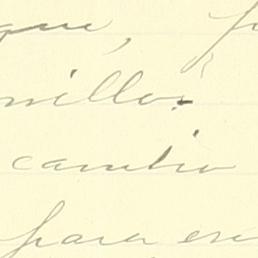 que, p
millos
cambio
para en